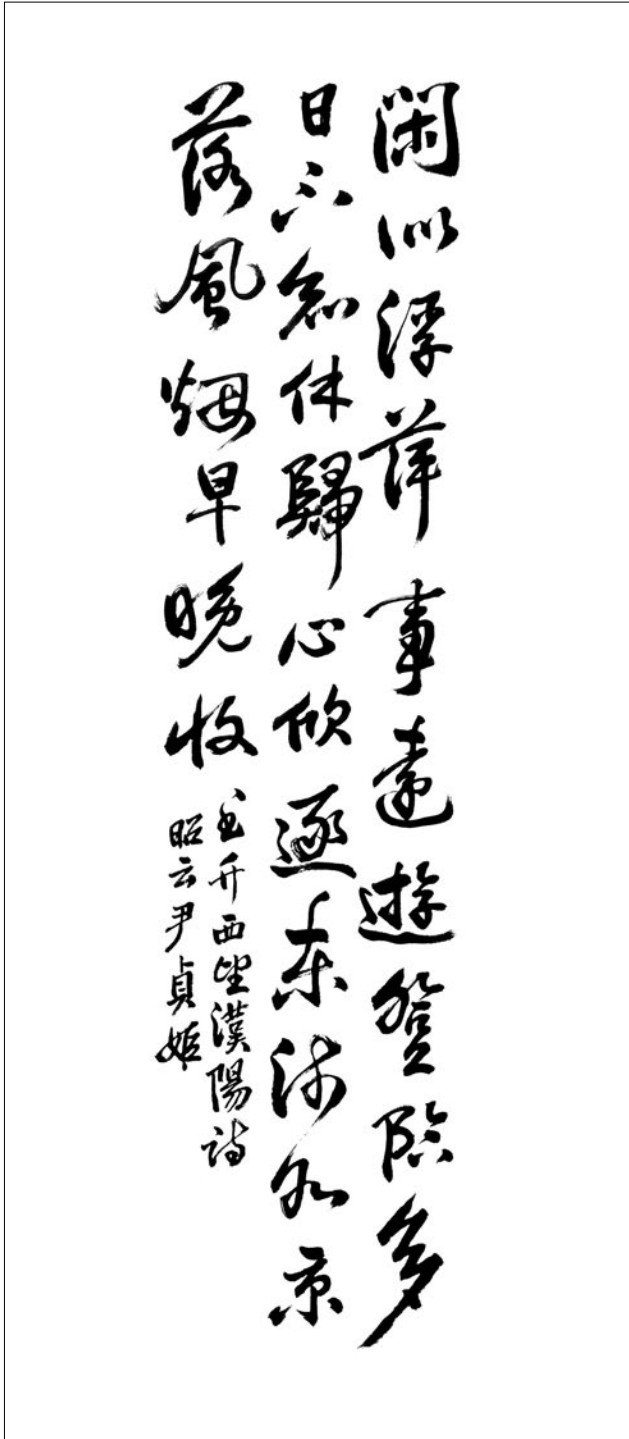 閑似浮萍事遠遊登臨多
日不知休歸心欲逐東流水京
落風煙早晚收
西望漢陽詩
昭云尹貞姬